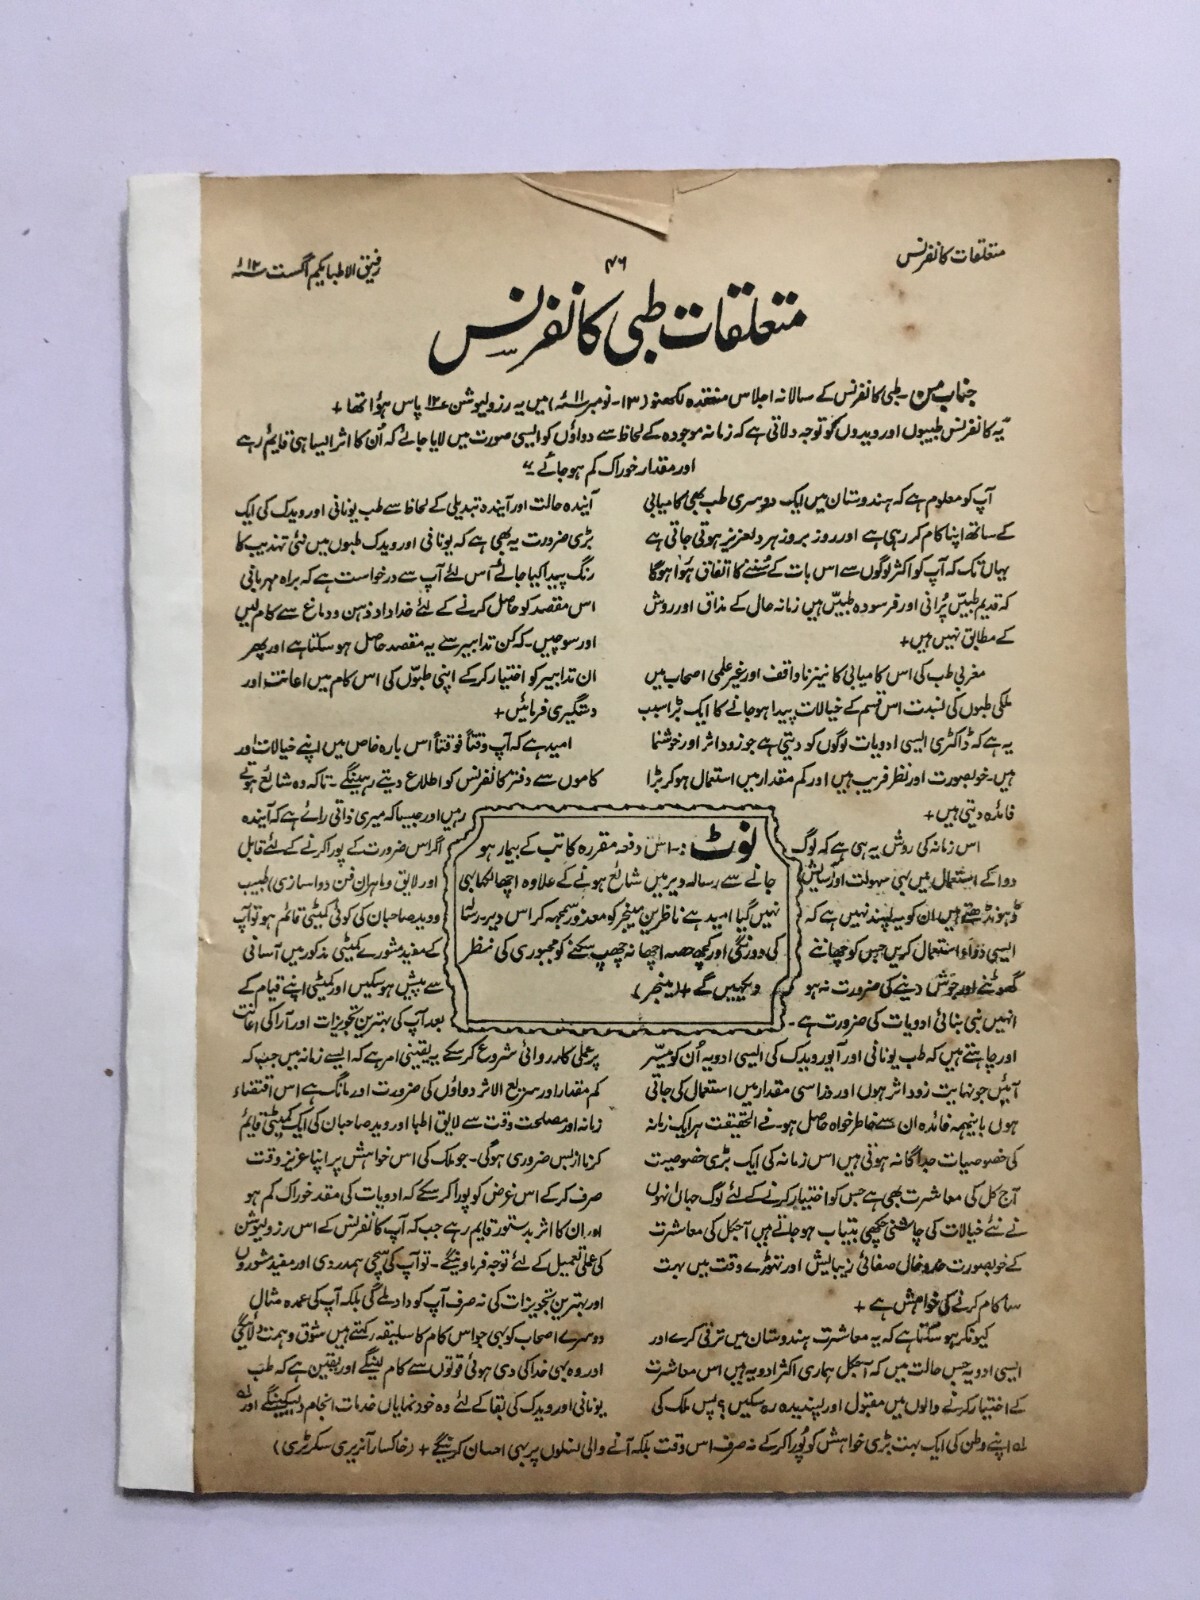 متعلقات کانفرنس
۴۶
رفیق الاطبا یکم اگست ۱۲ء
متعلقات طبی کانفرنس
جناب من ۔ طبی کانفرنس کے سالانہ اجلاس منعقدہ لکھنؤ (۱۳۔ نومبر ۱۱ء) میں یہ رزولیوشن ۱۲ پاس ہوا تھا +
"یہ کانفرنس طبیبوں اور ویدوں کو توجہ دلاتی ہے کہ زمانہ موجودہ کے لحاظ سے دواؤں کو ایسی صورت میں لایا جائے کہ اُن کا اثر ایسا ہی قایم رہے
اور مقدار خوراک کم ہو جائے ۔"
آپ کو معلوم ہے کہ ہندوستان میں ایک دوسری طب بھی کامیابی
کے ساتھ اپنا کام کر رہی ہے اور روز بروز ہر دلعزیز ہوتی جاتی ہے
یہاں تک کہ آپ کو اکثر لوگوں سے اس بات کے سُننے کا اتفاق ہوا ہوگا
کہ قدیم طبیں پُرانی اور فرسودہ طبیں ہیں زمانہ حال کے مذاق اور روش
کے مطابق نہیں ہیں +
مغربی طب کی اس کامیابی کا نیز ناواقف اور غیر علمی اصحاب میں
ملکی طبوں کی نسبت اس قسم کے خیالات پیدا ہو جانے کا ایک بڑا سبب
یہ ہے کہ ڈاکٹری ایسی ادویات لوگوں کو دیتی ہے جو زود اثر اور خوشنما
ہیں۔ خوبصورت اور نظر فریب ہیں اور کم مقدار میں استعمال ہو کر بڑا
فائدہ دیتی ہیں +
اس زمانہ کی روش یہ ہی ہے کہ لوگ
دوا کے استعمال میں بھی سہولت اور آسایش
ڈہونڈھتے ہیں ان کو یہ پسند نہیں ہے کہ
ایسی دواء استعمال کریں جس کو چھاننے
گھوٹنے اور جوش دینے کی ضرورت نہ ہو
انہیں بنی بنائی ادویات کی ضرورت ہے ۔
اور چاہتے ہیں کہ طب یونانی اور آیورویدک کی ایسی ادویہ اُن کو میسر
آئیں جو نہایت زود اثر ہوں اور ذرا سی مقدار میں استعمال کی جاتی
ہوں بااینہمہ فائدہ ان سے خاطر خواہ حاصل ہو۔ فے الحقیقت ہر ایک زمانہ
کی خصوصیات جداگانہ ہوتی ہیں اس زمانہ کی ایک بڑی خصوصیت
آج کل کی معاشرت بھی ہے جس کو اختیار کرنے کے لئے لوگ جہاں انہوں
نے نئے خیالات کی چاشنی چکھی بیتاب ہو جاتے ہیں آجکل کی معاشرت
کے خوبصورت خدوخال صفائی زیبایش اور تھوڑے وقت میں بہت
سا کام کرنے کی خواہش ہے +
کیونکر ہو سکتا ہے کہ یہ معاشرت ہندوستان میں ترقی کرے اور
ایسی ادویہ جس حالت میں کہ آجکل ہماری اکثر ادویہ ہیں اس معاشرت
کے اختیار کرنے والوں میں مقبول اور پسندیدہ رہ سکیں؟ پس ملک کی
آیندہ حالت اور آیندہ تبدیلی کے لحاظ سے طب یونانی اور ویدک کی ایک
بڑی ضرورت یہ بھی ہے کہ یونانی اور ویدک طبوں میں نئی تہذیب کا
رنگ پیدا کیا جائے اس لئے آپ سے درخواست ہے کہ براہ مہربانی
اس مقصد کو حاصل کرنے کے لئے خداداد ذہن و دماغ سے کام لیں
اور سوچیں ۔ کہ کن تدابیر سے یہ مقصد حاصل ہو سکتا ہے اور پھر
ان تدابیر کو اختیار کر کے اپنی طبّوں کی اس کام میں اعانت اور
دستگیری فرمائیں +
امید ہے کہ آپ وقتاً فوقتاً اس بارہ خاص میں اپنے خیالات اور
کاموں سے دفتر کانفرنس کو اطلاع دیتے رہینگے ۔ تاکہ وہ شائع ہوتے
رہیں اور جیسا کہ میری ذاتی رائے ہے کہ آیندہ
اگر اس ضرورت کے پورا کرنے کے لئے قابل
اور لایق و ماہران فن دواسازی، طبیب
و وید صاحبان کی کوئی کمیٹی قائم ہو تو آپ
کے مفید مشورے کمیٹی مذکور میں آسانی
سے پیش ہو سکیں اور کمیٹی اپنے قیام کے
بعد آپ کی بہترین تجویزات اور آرا کی اعانت
پر عملی کارروائی شروع کر سکے یہ یقینی امر ہے کہ ایسے زمانہ میں جب کہ
کم مقدار اور سریع الاثر دواؤں کی ضرورت اور مانگ ہے اس اقتضاء
زمانہ اور مصلحت وقت سے لایق اطبا اور وید صاحبان کی ایک کمیٹی قایم
کرنا از بس ضروری ہوگی ۔ جو ملک کی اس خواہش پر اپنا عزیز وقت
صرف کر کے اس غرض کو پورا کر سکے کہ ادویات کی مقدار خوراک کم ہو
اور ان کا اثر بدستور قایم رہے جب کہ آپ کانفرنس کے اس رزولیوشن
کی عملی تعمیل کے لئے توجہ فرماوینگے ۔ تو آپ کی سچی ہمدردی اور مفید مشوروں
اور بہترین تجویزات کی نہ صرف آپ کو داد ملے گی بلکہ آپ کی عمدہ مثال
دوسرے اصحاب کو بھی جو اس کام کا سلیقہ رکھتے ہیں شوق و ہمت دلائیگی
اور وہ بھی خدا کی دی ہوئی قوتوں سے کام لینگے اور یقین ہے کہ طب
یونانی اور ویدک کی بقا کے لئے وہ خود نمایاں خدمات انجام دیسکینگے اور
اپنے وطن کی ایک بہت بڑی خواہش کو پُورا کر کے نہ صرف اس وقت بلکہ آنے والی نسلوں پر بھی احسان کرینگے + (خاکسار آنریری سکرٹری)
نوٹ :۔ اس دفعہ مقررہ کاتب کے بیمار ہو
جانے سے رسالہ دیر میں شائع ہونے کے علاوہ اچھا لکھا بھی
نہیں گیا امید ہے ناظرین مینجر کو معذور سمجھ کر اس دیر رسا
کی دورنگی اور کچھ حصہ اچھا نہ چھپ سکنے کو مجبوری کی نظر
دیکھیں گے + (مینجر)